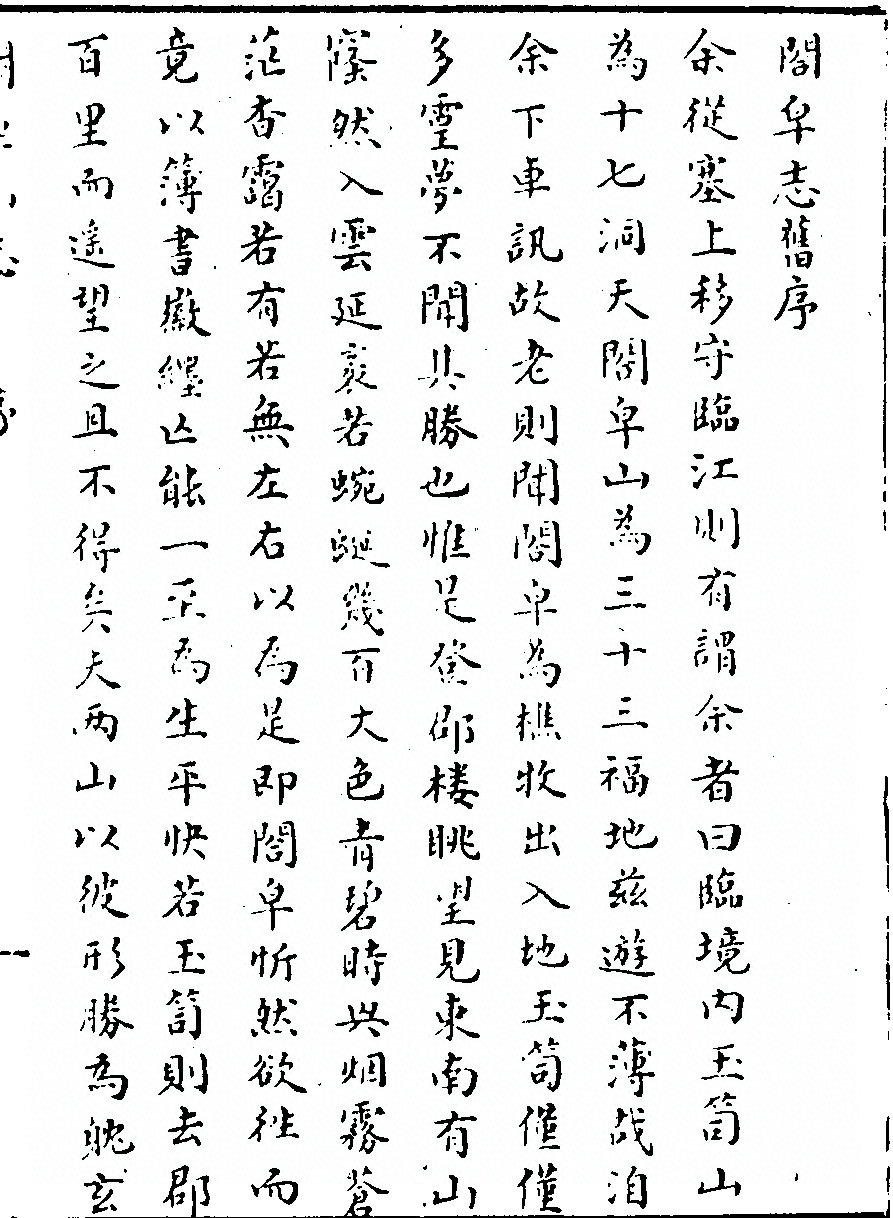 閤皁志舊序
余從塞上移守臨江則有謂余者曰臨境内玉笥山
為十七洞天閤皁山為三十三福地兹遊不薄哉洎
余下車訊故老則聞閤皁為樵牧出入地玉笥僅僅
多靈夢不聞其勝也惟是登郡樓眺望見東南有山
窿然入雲延袤若蜿蜒幾百大色青碧時與烟霧蒼
茫杳靄若有若無左右以為是即閤皁忻然欲徃而
竟以簿書徽纆亡能一至為生平快若玉笥則去郡
百里而遥望之且不得矣夫兩山以彼形勝為魄玄